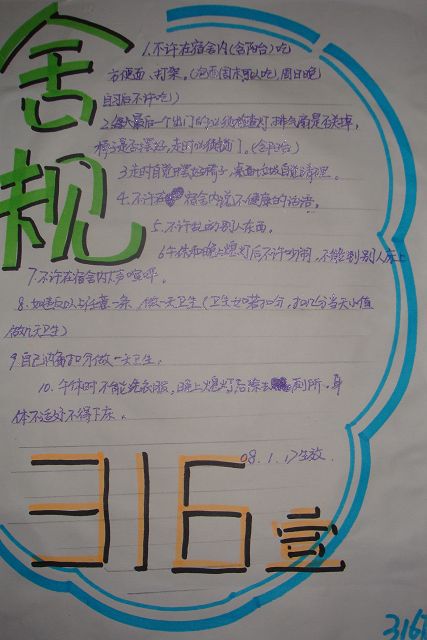 舍规
1.不许在宿舍内(含阳台)吃
方便面、打架。(包括周末可以吃,周日晚
自习后不许吃)
2.每天最后一个出门的必须检查灯、排气扇是否关掉,
椅子是否摆好,走时必须锁门。(含阳台)
3走时自觉摆好椅子,桌面垃圾自觉清理。
4.不许在宿舍内说不健康的话语。
5.不许乱动别人东西。
6午休和晚上熄灯后不许吵闹,不能到别人床上
7.不许在宿舍内大声喧哗。
8.如违反以上任意一条,做一天卫生(卫生如若扣分,扣几分当天小值
做几天卫生)
9.自己内务扣分做一天卫生。
10.午休时不能洗衣服,晚上熄灯后除去厕所,身
体不适外不得下床。
08.1.17生效.
316室
316